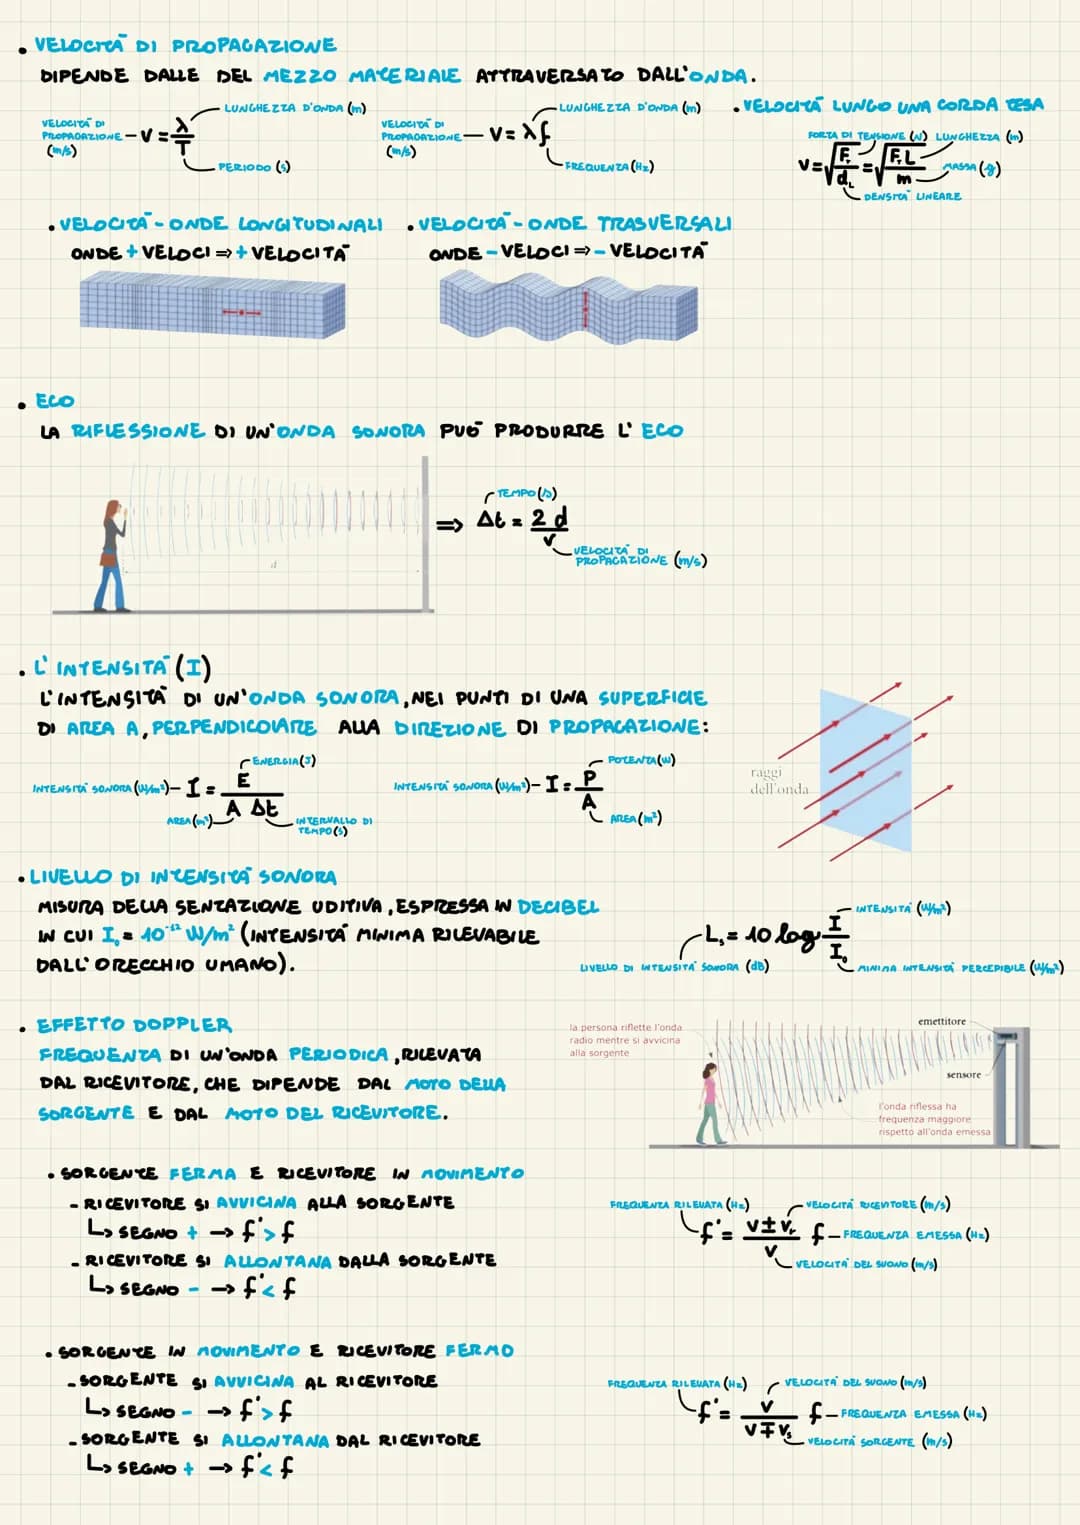 • VELOCITÀ DI PROPAGAZIONE
DIPENDE DALLE DEL MEZZO MATERIALE ATTRAVERSATO DALL'ONDA.
VELOCITÀ DI PROPAGAZIONE (m/s) – V = λ/T
LUNGHEZZA D'ONDA (m)
PERIODO (s)
VELOCITÀ DI PROPAGAZIONE (m/s) – V = λf
LUNGHEZZA D'ONDA (m)
FREQUENZA (Hz)
• VELOCITÀ LUNGO UNA CORDA TESA
FORZA DI TENSIONE (N) LUNGHEZZA (m)
V = √(F_T/d_L) = √(F_T L/m)
MASSA (g)
DENSITÀ LINEARE
• VELOCITÀ - ONDE LONGITUDINALI
ONDE + VELOCI ⇒ + VELOCITÀ
• VELOCITÀ - ONDE TRASVERSALI
ONDE - VELOCI ⇒ - VELOCITÀ
• ECO
LA RIFLESSIONE DI UN'ONDA SONORA PUÒ PRODURRE L'ECO
d
⇒ Δt = 2d/v
TEMPO (s)
VELOCITÀ DI PROPAGAZIONE (m/s)
• L'INTENSITÀ (I)
L'INTENSITÀ DI UN'ONDA SONORA, NEI PUNTI DI UNA SUPERFICIE
DI AREA A, PERPENDICOLARE ALLA DIREZIONE DI PROPAGAZIONE:
INTENSITÀ SONORA (W/m²) – I = E/(A Δt)
ENERGIA (J)
AREA (m²)
INTERVALLO DI TEMPO (s)
INTENSITÀ SONORA (W/m²) – I = P/A
POTENZA (W)
AREA (m²)
raggi
dell'onda
• LIVELLO DI INTENSITÀ SONORA
MISURA DELLA SENZAZIONE UDITIVA, ESPRESSA IN DECIBEL
IN CUI I₀ = 10⁻¹² W/m² (INTENSITÀ MINIMA RILEVABILE
DALL'ORECCHIO UMANO).
Lₛ = 10 log I/I₀
INTENSITÀ (W/m²)
LIVELLO DI INTENSITÀ SONORA (dB)
MINIMA INTENSITÀ PERCEPIBILE (W/m²)
• EFFETTO DOPPLER
FREQUENZA DI UN'ONDA PERIODICA, RILEVATA
DAL RICEVITORE, CHE DIPENDE DAL MOTO DELLA
SORGENTE E DAL MOTO DEL RICEVITORE.
la persona riflette l'onda
radio mentre si avvicina
alla sorgente
emettitore
sensore
l'onda riflessa ha
frequenza maggiore
rispetto all'onda emessa
• SORGENTE FERMA E RICEVITORE IN MOVIMENTO
- RICEVITORE SI AVVICINA ALLA SORGENTE
↳ SEGNO + → f' > f
- RICEVITORE SI ALLONTANA DALLA SORGENTE
↳ SEGNO - → f' < f
FREQUENZA RILEVATA (Hz)
VELOCITÀ RICEVITORE (m/s)
f' = (v ± vᵣ)/v f – FREQUENZA EMESSA (Hz)
VELOCITÀ DEL SUONO (m/s)
• SORGENTE IN MOVIMENTO E RICEVITORE FERMO
- SORGENTE SI AVVICINA AL RICEVITORE
↳ SEGNO - → f' > f
- SORGENTE SI ALLONTANA DAL RICEVITORE
↳ SEGNO + → f' < f
FREQUENZA RILEVATA (Hz)
VELOCITÀ DEL SUONO (m/s)
f' = v/(v ∓ vₛ) f – FREQUENZA EMESSA (Hz)
VELOCITÀ SORGENTE (m/s)